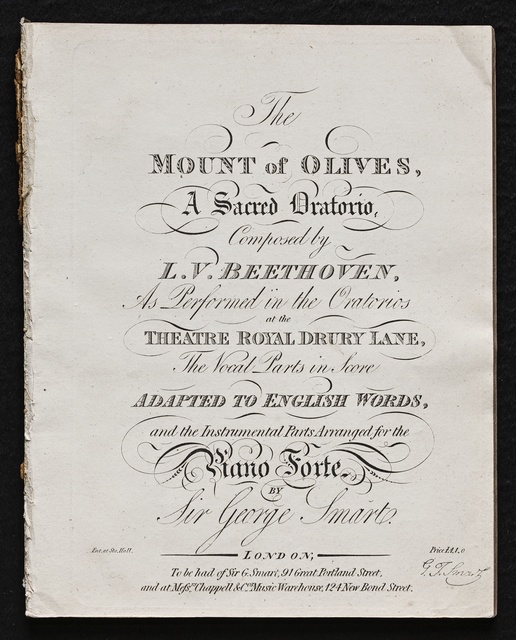 The
MOUNT of OLIVES,
A Sacred Oratorio,
Composed by
L.V. BEETHOVEN,
As Performed in the Oratorios
at the
THEATRE ROYAL DRURY LANE,
The Vocal Parts in Score
ADAPTED TO ENGLISH WORDS,
and the Instrumental Parts Arranged for the
Piano Forte,
BY
Sir George Smart.
Ent. at Sta. Hall.
LONDON;
Price £1,1,0
To be had of Sir G. Smart, 91 Great Portland Street,
and at Messrs. Chappell & Cos. Music Warehouse, 124 New Bond Street.
G. T. Smart